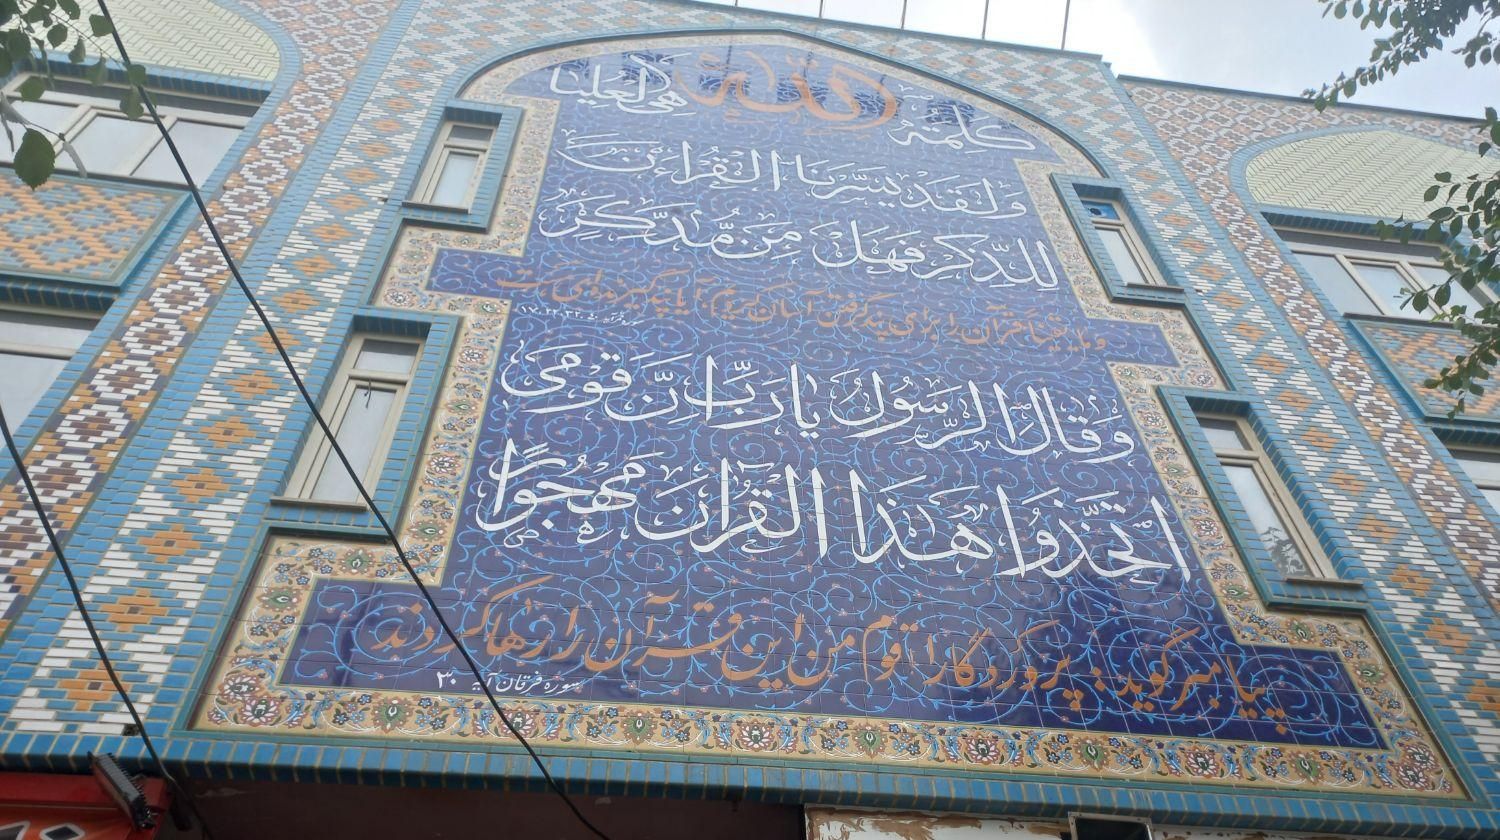 كلمة الله هي العليا
ولقد يسرنا القرءان
للذكر فهل من مدكر
و ما یقینا قرآن را برای پند گرفتن آسان کردیم، آیا پند گیرنده‌ای هست
سوره قمر آیه ۱۷.۲۲.۳۲.۴۰
وَقَالَ الرَّسُولُ يَا رَبِّ إِنَّ قَوْمِي
اتَّخَذُوا هَذَا الْقُرْآنَ مَهْجُورًا
پیامبر گوید: پروردگارا قوم من این قرآن را رها کردند
سوره فرقان آیه ۳۰